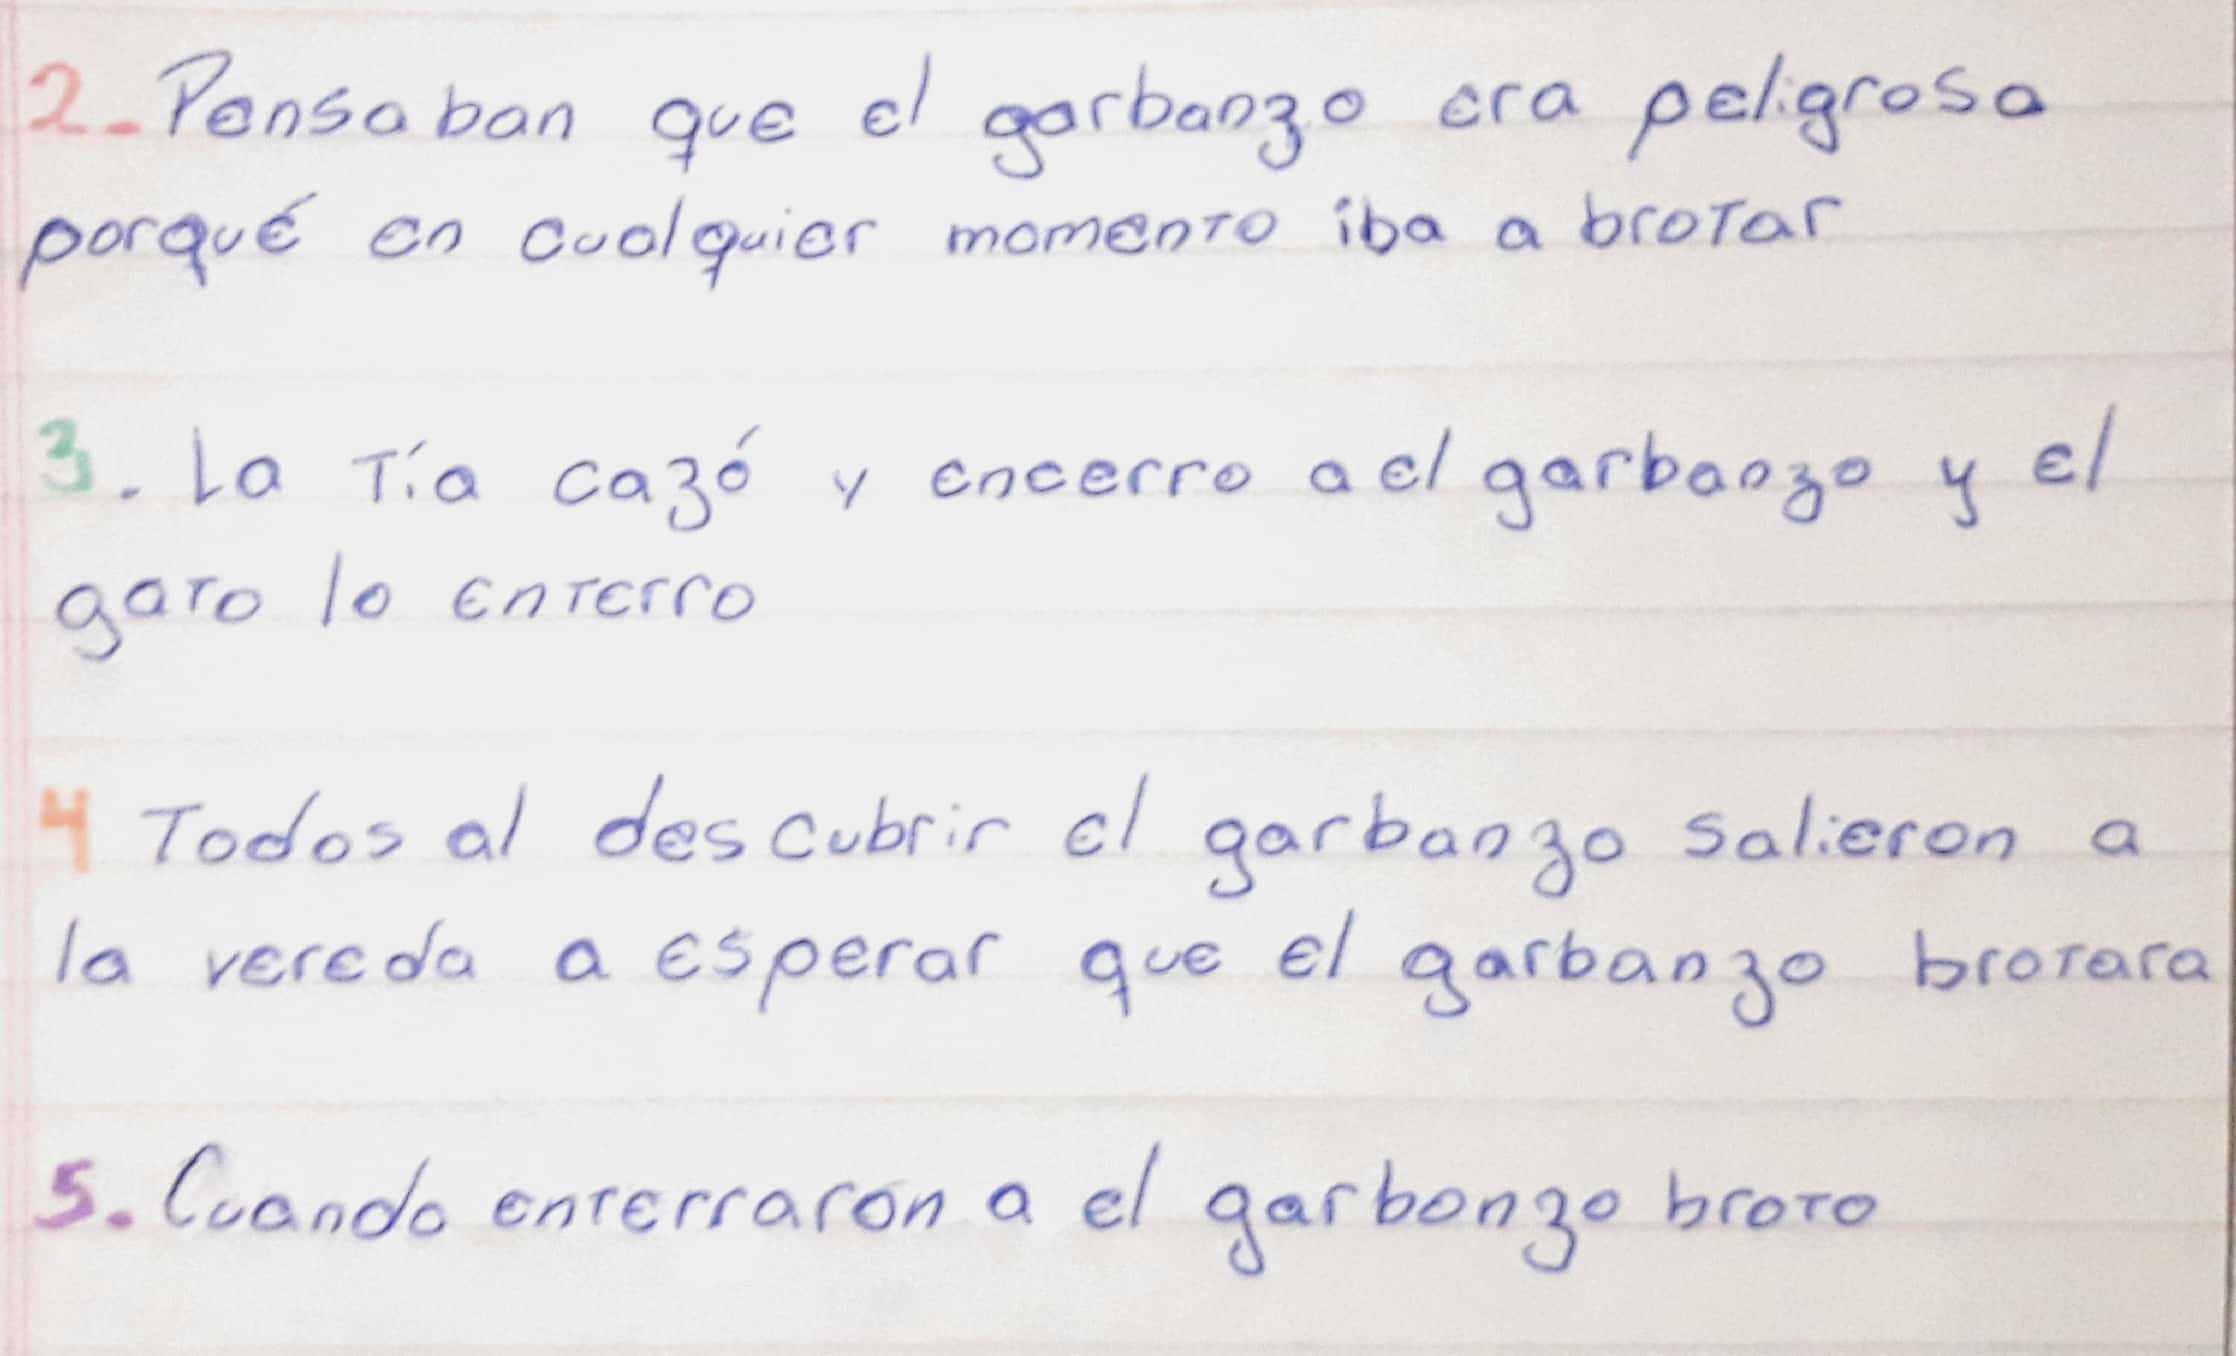 2- Pensaban que el garbanzo era peligroso
porqué en cualquier momento iba a brotar
3. La Tía cazó y encerro a el garbanzo y el
gato lo enterro
4 Todos al descubrir el garbanzo salieron a
la vereda a esperar que el garbanzo brotara
5. Cuando enterraron a el garbonzo broto